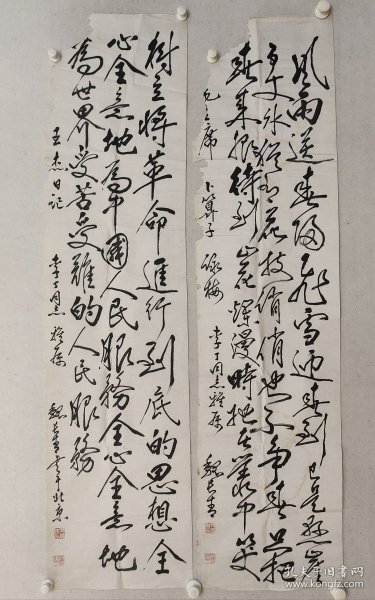 风雨送春归飞雪迎春到已是悬崖
百丈冰犹有花枝俏俏也不争春只把
春来报待到山花烂漫时她在丛中笑
毛主席 卜算子 咏梅 李丁同志雅属 魏长青
树立将革命进行到底的思想全
心全意地为中国人民服務全心全意地
為世界受苦受难的人民服務
王杰日记 李丁同志雅属 魏长青书于北京
孔夫子旧书网
www.kongfz.com